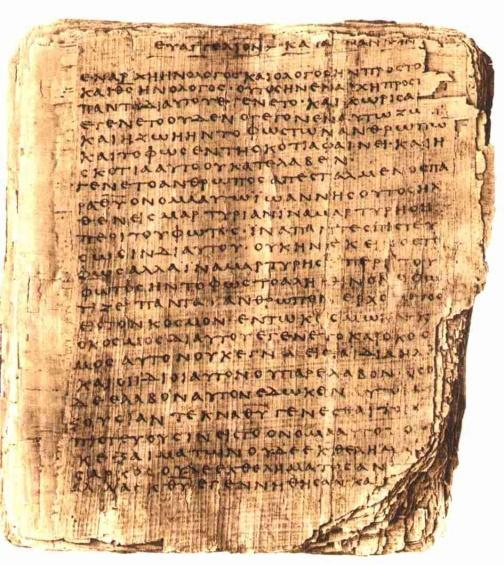 ΕΥΑΓΓΕΛΙΟΝ ΚΑΤΑ
ΕΝ ΑΡΧΗ ΗΝ Ο ΛΟΓΟϹ ΚΑΙ Ο ΛΟΓΟϹ ΗΝ ΠΡΟϹ ΤΟ
ΚΑΙ ΘϹ ΗΝ Ο ΛΟΓΟϹ ΟΥΤΟϹ ΗΝ ΕΝ ΑΡΧΗ ΠΡΟϹ
ΠΑΝΤΑ ΔΙ ΑΥΤΟΥ ΕΓΕΝΕΤΟ ΚΑΙ ΧΩΡΙϹ Α
ΕΓΕΝΕΤΟ ΟΥΔΕΝ Ο ΓΕΓΟΝΕΝ ΑΥΤΩ ΖΩ
ΚΑΙ Η ΖΩΗ ΗΝ ΤΟ ΦΩϹ ΤΩΝ ΑΝΘΡΩΠΩ
ΚΑΙ ΤΟ ΦΩϹ ΕΝ ΤΗ ϹΚΟΤΙΑ ΦΑΙΝΕΙ ΚΑΙ Η
ϹΚΟΤΙΑ ΑΥΤΟ ΟΥ ΚΑΤΕΛΑΒΕΝ
ΕΓΕΝΕΤΟ ΑΝΘΡΩΠΟϹ ΑΠΕϹΤΑΛΜΕΝΟϹ ΠΑ
ΡΑ ΘΥ ΟΝΟΜΑ ΑΥΤΩ ΙΩΑΝΝΗϹ ΟΥΤΟϹ ΗΛ
ΘΕΝ ΕΙϹ ΜΑΡΤΥΡΙΑΝ ΙΝΑ ΜΑΡΤΥΡΗϹΗ
ΠΕΡΙ ΤΟΥ ΦΩΤΟϹ ΙΝΑ ΠΑΝΤΕϹ ΠΙϹΤΕΥ
ϹΩϹΙΝ ΔΙ ΑΥΤΟΥ ΟΥΚ ΗΝ ΕΚΕΙΝΟϹ ΤΟ
ΦΩϹ ΑΛΛΑ ΙΝΑ ΜΑΡΤΥΡΗϹΗ ΠΕΡΙ ΤΟΥ
ΦΩΤΟϹ ΗΝ ΤΟ ΦΩϹ ΤΟ ΑΛΗΘΙΝΟΝ Ο ΦΩ
ΤΙΖΕΙ ΠΑΝΤΑ ΑΝΘΡΩΠΟΝ
ΕΙϹ ΤΟΝ ΚΟϹΜΟΝ ΕΝ ΤΩ ΚΟϹΜΩ
Ο ΚΟϹΜΟϹ ΔΙ ΑΥΤΟΥ ΕΓΕΝΕΤΟ ΚΑΙ Ο ΚΟϹ
ΜΟϹ ΑΥΤΟΝ ΟΥΚ ΕΓΝΩ ΕΙϹ ΤΑ ΙΔΙΑ ΗΛ
ΚΑΙ ΟΙ ΙΔΙΟΙ ΑΥΤΟΝ ΟΥ ΠΑΡΕΛΑΒΟΝ ΟϹΟΙ
ΔΕ ΕΛΑΒΟΝ ΑΥΤΟΝ ΕΔΩΚΕΝ
ΞΟΥϹΙΑΝ ΤΕΚΝΑ ΘΥ ΓΕΝΕϹΘΑΙ ΤΟΙϹ
ΠΙϹΤΕΥΟΥϹΙΝ ΕΙϹ ΤΟ ΟΝΟΜΑ
ΟΥΚ ΕΞ ΑΙΜΑΤΩΝ ΟΥΔΕ ΕΚ ΘΕΛΗΜ
ϹΑΡΚΟϹ ΟΥΔΕ ΕΚ ΘΕΛΗΜΑΤΟϹ ΑΝ
ΑΛΛ ΕΚ ΘΥ ΕΓΕΝΝΗΘΗϹΑΝ ΚΑΙ